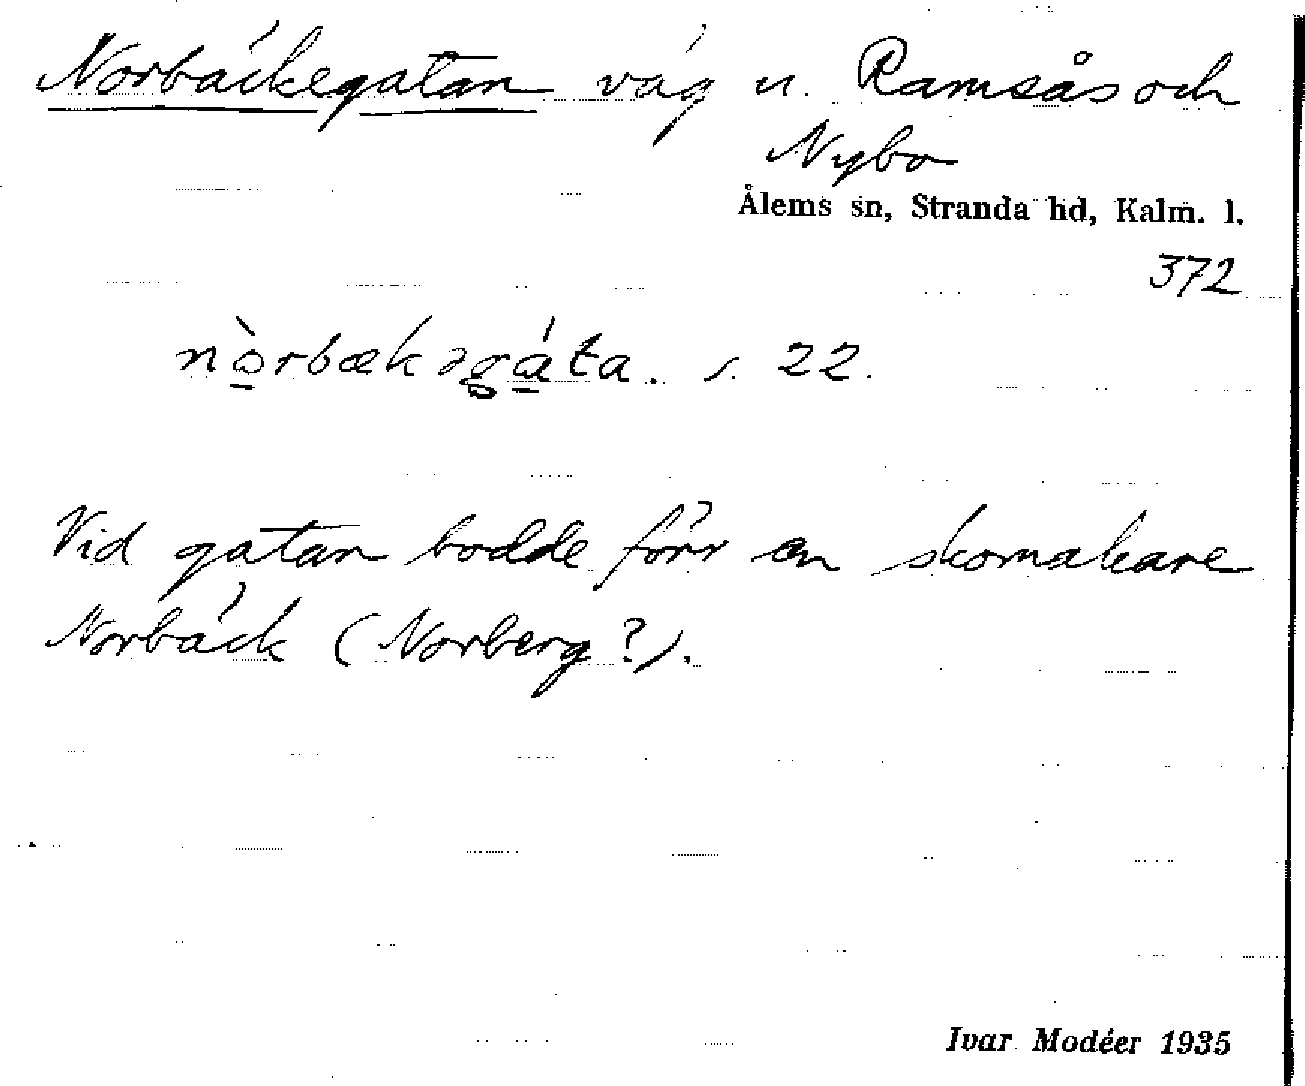 Norbäckegatan väg n. Ramsås och
Nybo
Ålems sn, Stranda hd, Kalm. l.
372
nòrbækəgáta. s. 22.
Vid gatan bodde förr en skomakare
Norbäck (Norberg?).
Ivar Modéer 1935